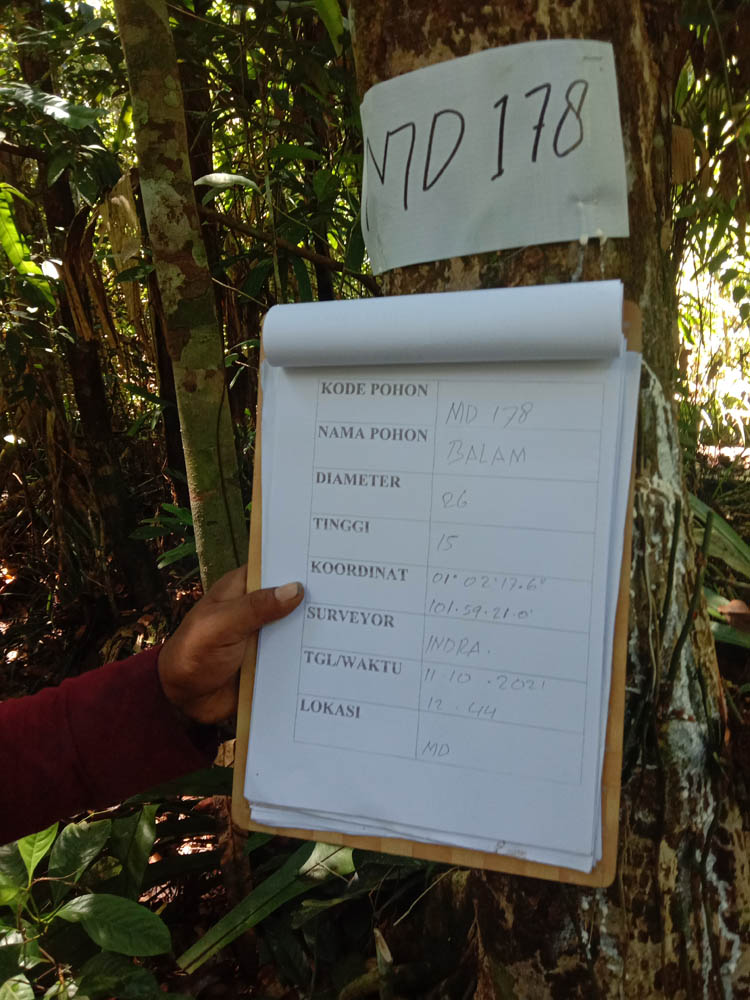 MD 178
KODE POHON MD 178
NAMA POHON BALAM
DIAMETER 26
TINGGI 15
KOORDINAT 01° 02' 17.6"
101.59.21.0'
SURVEYOR INDRA.
TGL/WAKTU 11.10.2021
12.44
LOKASI MD